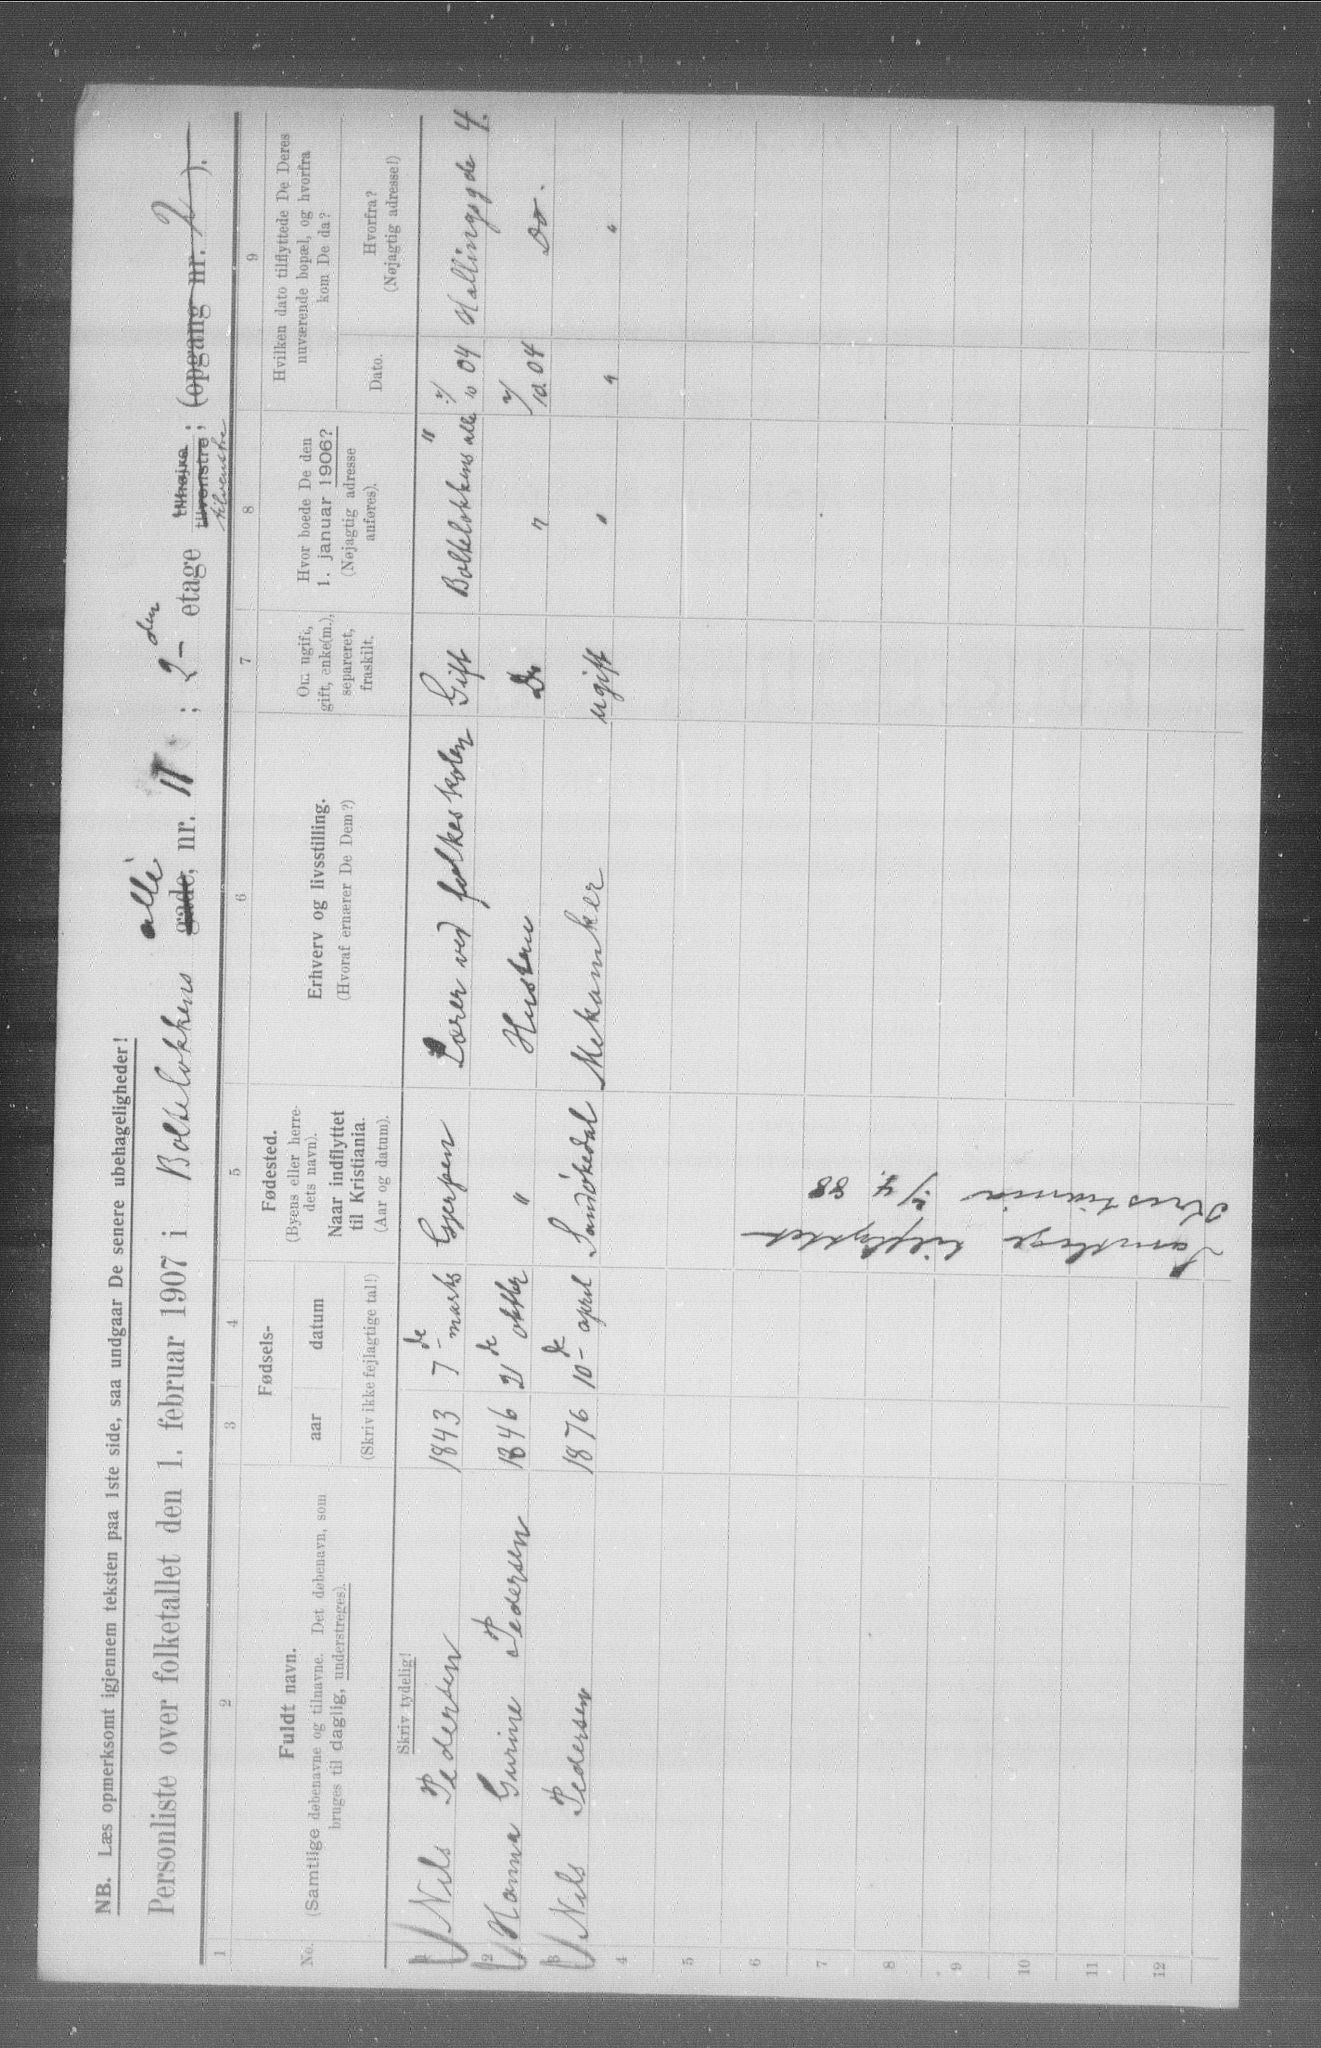 NB. Læs opmerksomt igjennem teksten paa 1ste side, saa undgaar De senere ubehageligheder!
Personliste over folketallet den 1. februar 1907 i Bolteløkkens gade, allé nr. 11 ; 2- den etage tilhøjre tilvenstre tilvenstre ; (opgang nr. ).
1 2 3 4 5 6 7 8 9
No.
Fuldt navn.
(Samtlige døbenavne og tilnavne. Det døbenavn, som
bruges til daglig, understreges).
Skriv tydelig!
Fødsels-
aar datum
(Skriv ikke fejlagtige tal!)
Fødested.
(Byens eller herre-
dets navn).
Naar indflyttet
til Kristiania.
(Aar og datum).
Erhverv og livsstilling.
(Hvoraf ernærer De Dem?)
Om ugift,
gift, enke(m.),
separeret,
fraskilt.
Hvor boede De den
1. januar 1906?
(Nøjagtig adresse
anføres).
Hvilken dato tilflyttede De Deres
nuværende bopæl, og hvorfra
kom De da?
Dato.
Hvorfra?
(Nøjagtig adresse!)
1 Nils Pedersen 1843 7de marts Gjerpen Lærer ved folkeskolen Gift Bolteløkkens allé 11 10 04 Hallingsgde 4.
2 Hanna Gurine Pedersen 1846 21de oktbr " Hustru Do " 10 04 Do.
3 Nils Pedersen 1876 10de april Sandøkedal Mekaniker ugift " " "
4
5
6
7
8
9
10
11
12
Samtlige tilflyttet
Kristiania 4 88